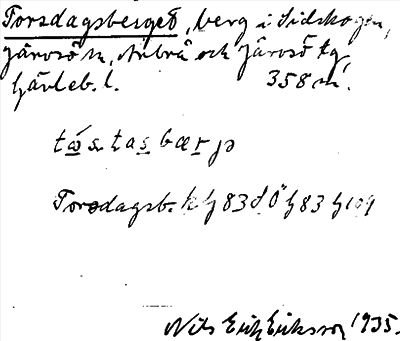 Torsdagsberget, berg i Sidskogen,
Järvsö sn, Arbrå och Järvsö tg,
Gävleb. l. 358 m.
tɷ́s̱ ta s̱ bærjə
Torsdagsb. k G 83 d Ö G 83 G 109
Nils Erik Eriksson 1935.